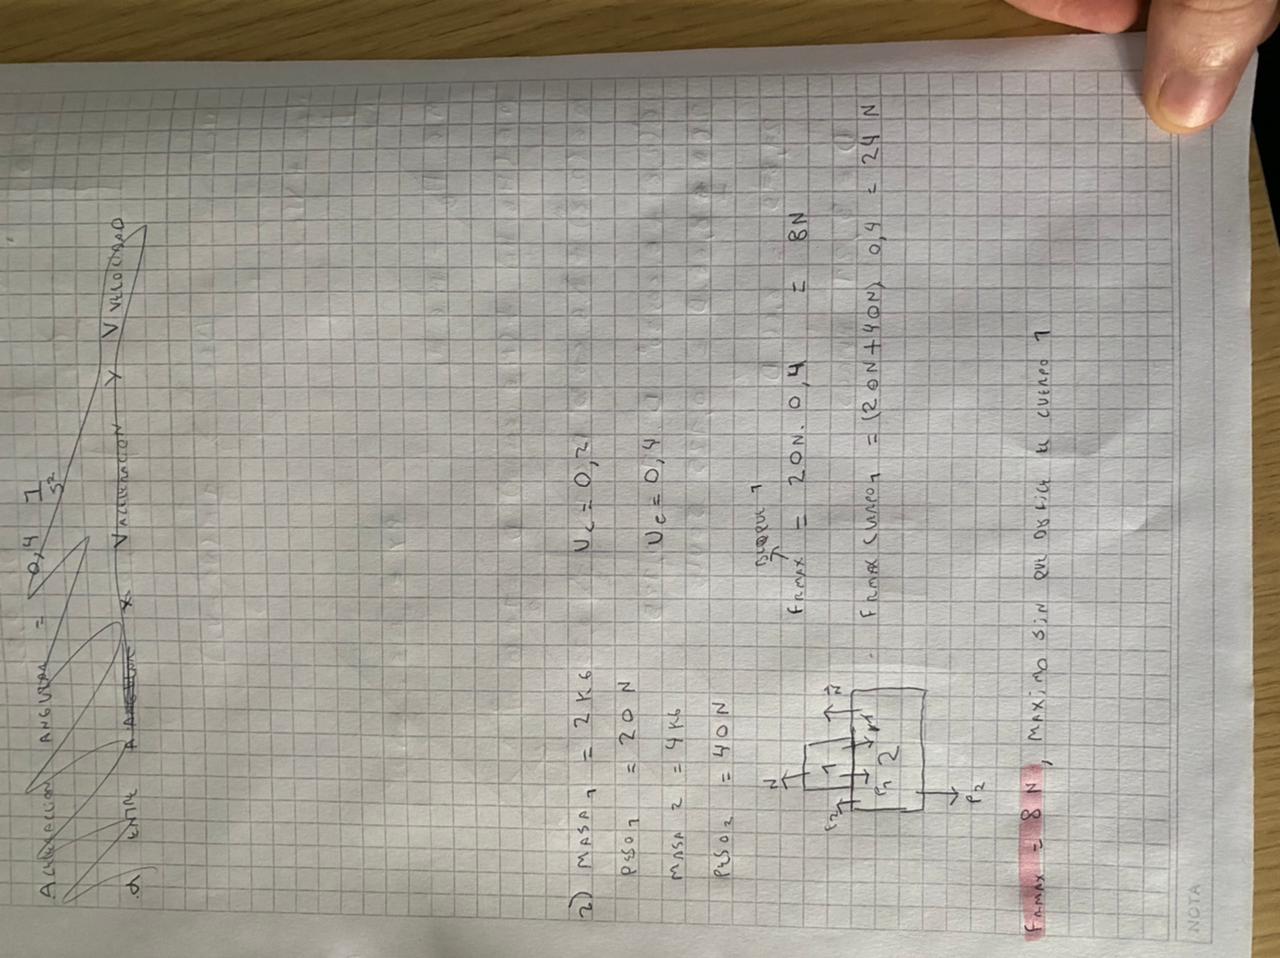 ACELERACION ANGULAR = 0,4 1/s²
α ENTRE A X V ACELERACION Y V VELOCIDAD
2) MASA 1 = 2 KG Uc = 0,2
PESO 1 = 20 N
MASA 2 = 4 KG Uc = 0,4
PESO 2 = 40 N
FRMAX = 20N. 0,4 = 8N
FRMAX CUERPO 1 = (20N+40N) 0,4 = 24 N
N
N
1
2
P1
P2
FRMAX = 8 N, MAXIMO SIN QUE DESLICE EL CUERPO 1
NOTA